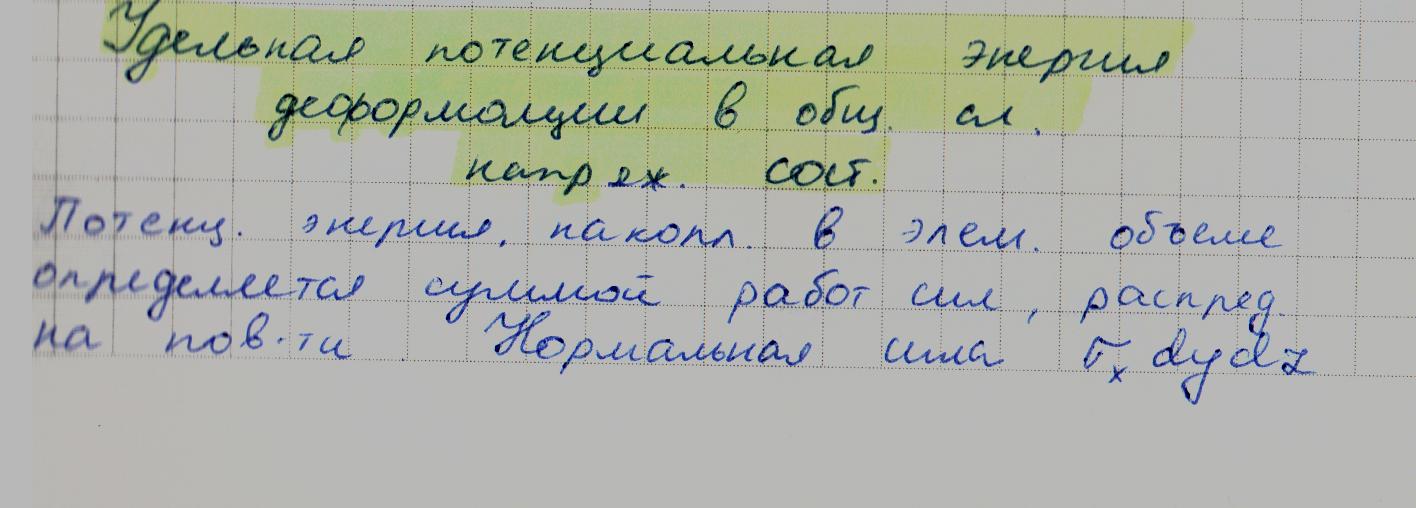 Удельная потенциальная энергия
деформации в общ. сл.
напряж. сост.
Потенц. энергия, накопл. в элем. объеме
определяется суммой работ сил, распред.
на пов-ти. Нормальная сила σₓ dydz